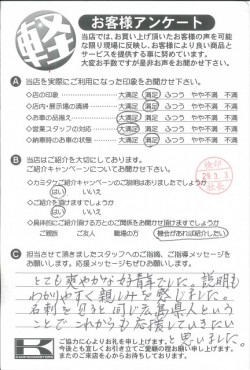 軽
お客様アンケート
当店では、お買い上げ頂いたお客様の声を可能
な限り現場に反映し、お客様により良い商品と
サービスを提供する事に努めています。
大変お手数ですが是非お声をお聞かせ下さい。
A 当店を実際にご利用になった印象をお聞かせ下さい。
・店の印象 大満足 満足 ふつう やや不満 不満
・店内・展示場の清掃 大満足 満足 ふつう やや不満 不満
・お車の品揃え 大満足 満足 ふつう やや不満 不満
・営業スタッフの対応 大満足 満足 ふつう やや不満 不満
・納車時のお車の状態 大満足 満足 ふつう やや不満 不満
B 当店はご紹介を大切にしております。
ご紹介キャンペーンについてお聞かせ下さい。
・カミタケご紹介キャンペーンのご説明はありましたでしょうか
はい いいえ
・ご紹介を頂けますでしょうか
はい いいえ
・具体的にご紹介頂ける方とのご関係をお聞かせ頂けますでしょうか
ご親戚 ご友人 職場の方 機会があれば紹介したい
検印
社長
C 担当させて頂きましたスタッフへのご指摘、ご指導メッセージを
お願いします。応援メッセージもぜひお願いします。
とても爽やかな好青年でした。説明も
わかりやすく親しみを感じました。
名刺を見ると同じ広島県人という
ことでこれからも応援していきたい
と思いました。
K
ご協力に心よりお礼を申し上げます。
今後とも宜しくお引き立てご愛顧の程お願い申し上げます。
またのご来店を心からお待ちしております。